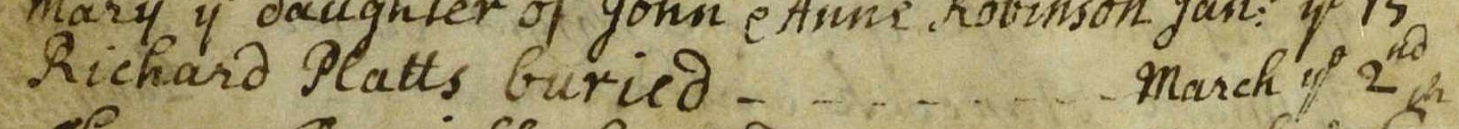 Mary yᵉ daughter of John & Anne Robinson Jan: yᵉ 15
Richard Platts buried - - - - - - - - March yᵉ 2nd